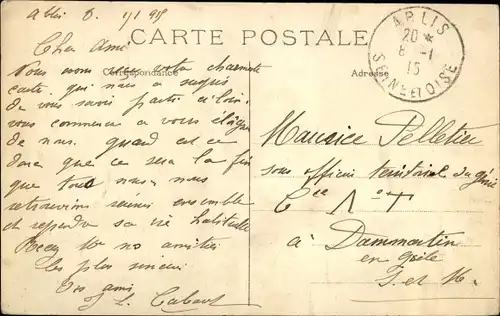 Ablis
CARTE POSTALE
ABLIS
20 *
8 -1
15
SEINE ET OISE
Cher Ami
Correspondance
Adresse
Nous avons reçu votre charmante
carte qui nous a surpris
de vous savoir parti si loin
vous commencez a vous éloigner
de nous. quand est ce
donc que ce sera la fin
que tous nous nous
retrouvions réunis ensemble
et reprendre sa vie habituelle
Recevez nos amitiés
les plus sincères
Vos amis
Maurice Pelletier
sous officier territorial du génie
Cie
à Dammartin
en Goële
S. et M.